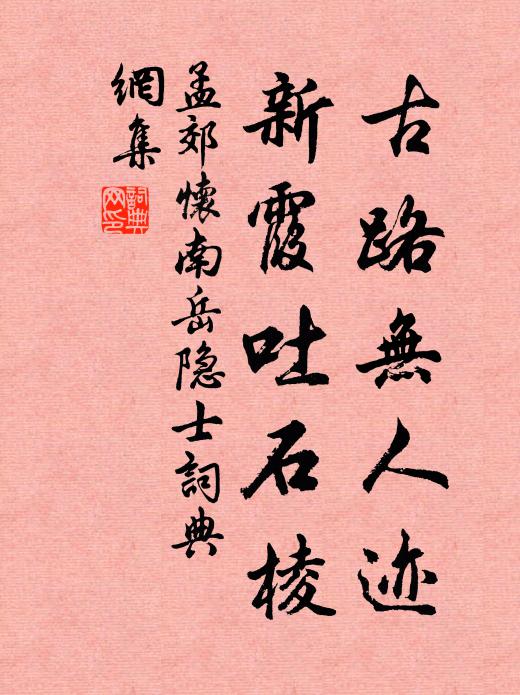 古路無人迹
新霞吐石棱
孟郊懷南岳隐士詞典
網集
詞典
网印